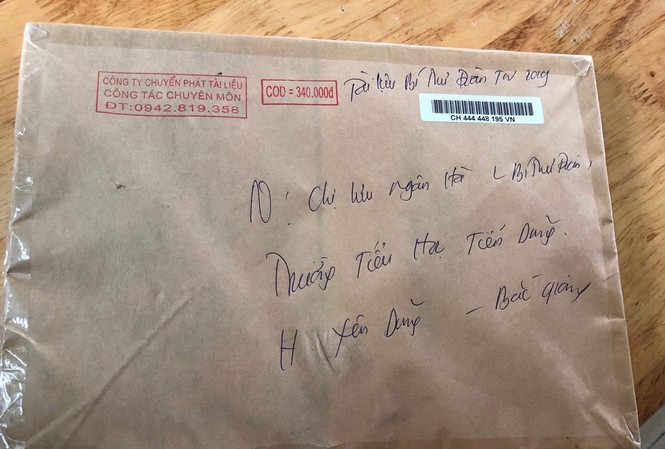 CÔNG TY CHUYỂN PHÁT TÀI LIỆU
CÔNG TÁC CHUYÊN MÔN
ĐT:0942.819.358
COD = 340.000đ
Tài liệu Bí Thư Đoàn TN 2019
CH 444 448 195 VN
N: Chị Lưu Ngân Hà - Bí Thư Đoàn,
Trường Tiểu Học Tiến Dũng.
H Yên Dũng - Bắc Giang